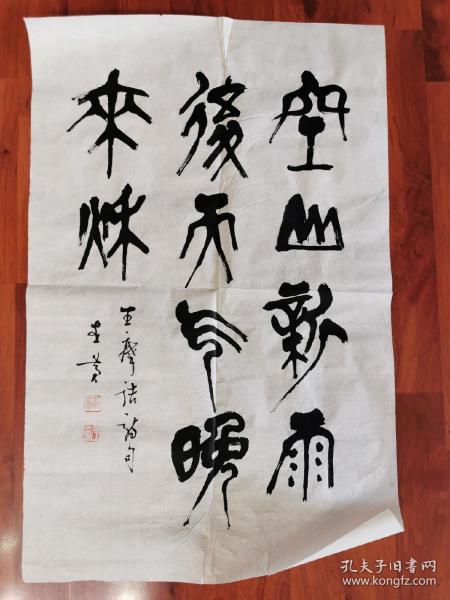 空山新雨
後天气晚
來秌
王摩诘诗句
孔夫子旧书网
www.kongfz.com